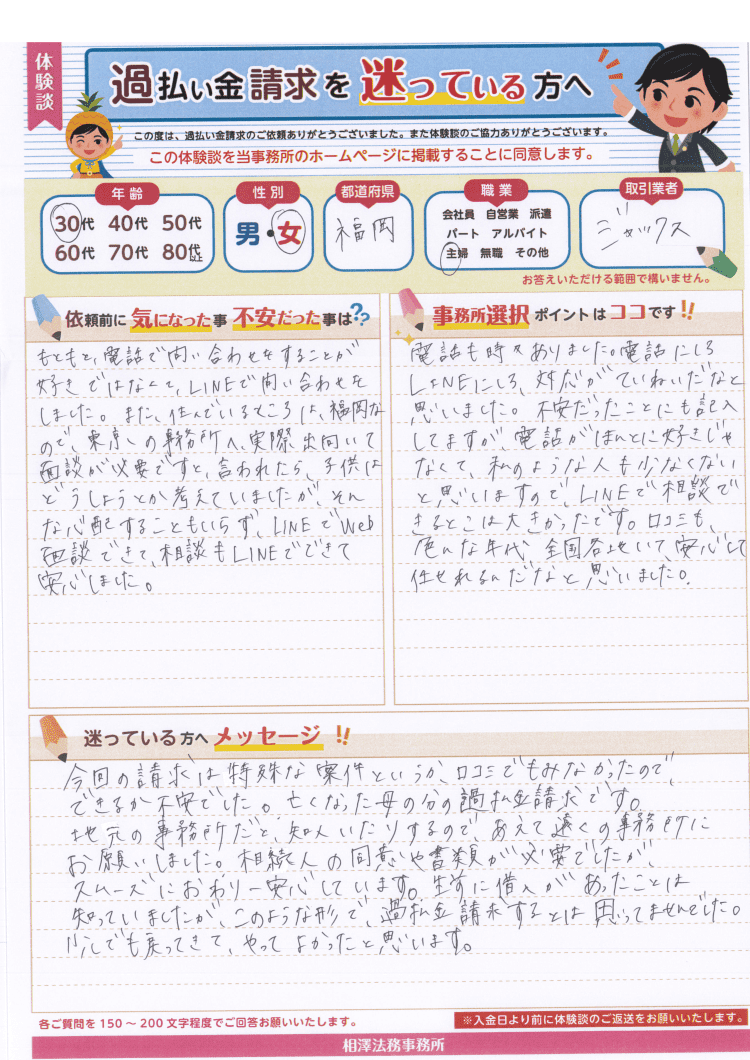 体験談
過払い金請求を迷っている方へ
この度は、過払い金請求のご依頼ありがとうございました。また体験談のご協力ありがとうございます。
この体験談を当事務所のホームページに掲載することに同意します。
年齢
30代 40代 50代
60代 70代 80代以上
性別
男・女
都道府県
福岡
職業
会社員 自営業 派遣
パート アルバイト
主婦 無職 その他
取引業者
ジャックス
お答えいただける範囲で構いません。
依頼前に気になった事 不安だった事は??
もともと、電話で問い合わせをすることが
好きではなくて、LINEで問い合わせを
しました。また、住んでいるところは、福岡な
ので、東京の事務所へ、実際出向いて
面談が必要ですと、言われたら、子供は
どうしようとか考えていましたが、そん
な心配することもいらず、LINEでWeb
面談できて、相談もLINEでできて
安心しました。
事務所選択ポイントはココです!!
電話も時々ありました。電話にしろ
LINEにしろ、対応がていねいだなと
思いました。不安だったことにも記入
してますが、電話がほんとに好きじゃ
なくて、私のような人も少なくない
と思いますので、LINEで相談で
きるとこは大きかったです。口コミも、
色んな年代、全国各地いて、安心して
任せれるんだなと思いました。
迷っている方へメッセージ!!
今回の請求は特殊な案件というか、口コミでもみなかったので、
できるか不安でした。亡くなった母の分の過払金請求です。
地元の事務所だと、知人いたりするので、あえて遠くの事務所に
お願いしました。相続人の同意や書類が必要でしたが、
スムーズにおわり一安心しています。生前に借入があったことは
知っていましたが、このような形で、過払金請求するとは思ってませんでした。
少しでも戻ってきて、やってよかったと思います。
各ご質問を150〜200文字程度でご回答お願いいたします。
※入金日より前に体験談のご返送をお願いいたします。
相澤法務事務所